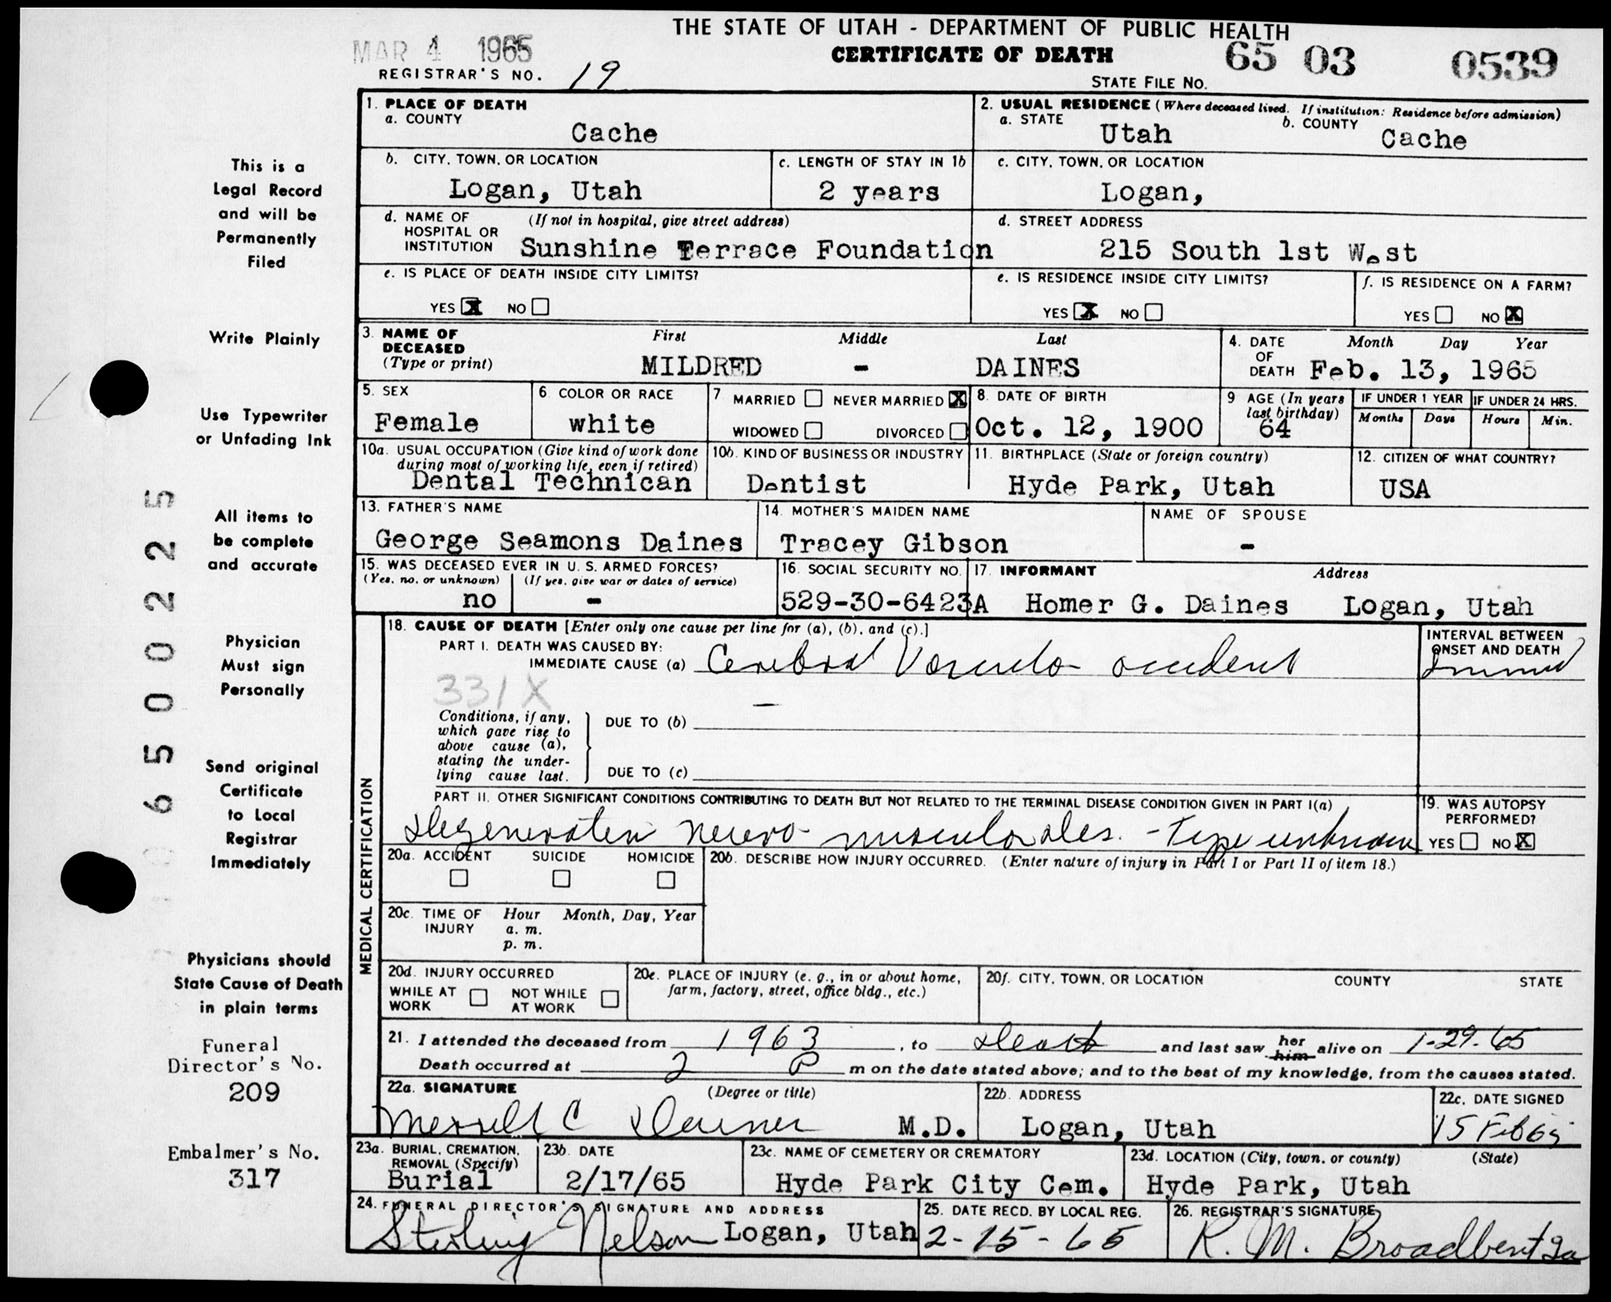 THE STATE OF UTAH - DEPARTMENT OF PUBLIC HEALTH
MAR 4 1965
CERTIFICATE OF DEATH
65 03 0539
REGISTRAR'S NO. 19
STATE FILE NO.
1. PLACE OF DEATH
a. COUNTY
Cache
2. USUAL RESIDENCE (Where deceased lived. If institution: Residence before admission)
a. STATE
Utah
b. COUNTY
Cache
b. CITY, TOWN, OR LOCATION
Logan, Utah
c. LENGTH OF STAY IN 1b
2 years
c. CITY, TOWN, OR LOCATION
Logan,
d. NAME OF HOSPITAL OR INSTITUTION
(If not in hospital, give street address)
Sunshine Terrace Foundation
d. STREET ADDRESS
215 South 1st West
e. IS PLACE OF DEATH INSIDE CITY LIMITS?
YES X NO
e. IS RESIDENCE INSIDE CITY LIMITS?
YES X NO
f. IS RESIDENCE ON A FARM?
YES NO X
3. NAME OF DECEASED
(Type or print)
First Middle Last
MILDRED - DAINES
4. DATE OF DEATH
Month Day Year
Feb. 13, 1965
5. SEX
Female
6 COLOR OR RACE
white
7 MARRIED NEVER MARRIED X
WIDOWED DIVORCED
8. DATE OF BIRTH
Oct. 12, 1900
9 AGE (In years last birthday)
64
IF UNDER 1 YEAR
Months Days
IF UNDER 24 HRS.
Hours Min.
10a. USUAL OCCUPATION (Give kind of work done during most of working life, even if retired)
Dental Technican
10b. KIND OF BUSINESS OR INDUSTRY
Dentist
11. BIRTHPLACE (State or foreign country)
Hyde Park, Utah
12. CITIZEN OF WHAT COUNTRY?
USA
13. FATHER'S NAME
George Seamons Daines
14. MOTHER'S MAIDEN NAME
Tracey Gibson
NAME OF SPOUSE
-
15. WAS DECEASED EVER IN U. S. ARMED FORCES?
(Yes, no, or unknown) (If yes, give war or dates of service)
no -
16. SOCIAL SECURITY NO.
529-30-6423A
17. INFORMANT Address
Homer G. Daines Logan, Utah
MEDICAL CERTIFICATION
18. CAUSE OF DEATH [Enter only one cause per line for (a), (b), and (c).]
PART I. DEATH WAS CAUSED BY:
IMMEDIATE CAUSE (a) Cerebral Vascular accident
INTERVAL BETWEEN ONSET AND DEATH
331X
Conditions, if any, which gave rise to above cause (a), stating the underlying cause last.
DUE TO (b) -
DUE TO (c)
PART II. OTHER SIGNIFICANT CONDITIONS CONTRIBUTING TO DEATH BUT NOT RELATED TO THE TERMINAL DISEASE CONDITION GIVEN IN PART I(a)
neuro-muscular des. - Type unknown
19. WAS AUTOPSY PERFORMED?
YES NO X
20a. ACCIDENT SUICIDE HOMICIDE
20b. DESCRIBE HOW INJURY OCCURRED. (Enter nature of injury in Part I or Part II of item 18.)
20c. TIME OF INJURY
Hour Month, Day, Year
a. m.
p. m.
20d. INJURY OCCURRED
WHILE AT WORK NOT WHILE AT WORK
20e. PLACE OF INJURY (e. g., in or about home, farm, factory, street, office bldg., etc.)
20f. CITY, TOWN, OR LOCATION COUNTY STATE
21. I attended the deceased from 1963, to Death and last saw her him alive on 1-29-65
Death occurred at 2 P m on the date stated above; and to the best of my knowledge, from the causes stated.
22a. SIGNATURE (Degree or title)
Merrill C M.D.
22b. ADDRESS
Logan, Utah
22c. DATE SIGNED
15 Feb 65
23a. BURIAL, CREMATION, REMOVAL (Specify)
Burial
23b. DATE
2/17/65
23c. NAME OF CEMETERY OR CREMATORY
Hyde Park City Cem.
23d. LOCATION (City, town, or county) (State)
Hyde Park, Utah
24. FUNERAL DIRECTOR'S SIGNATURE AND ADDRESS
Sterling Nelson Logan, Utah
25. DATE RECD. BY LOCAL REG.
2-15-65
26. REGISTRAR'S SIGNATURE
R. M. Broadbent
This is a
Legal Record
and will be
Permanently
Filed
Write Plainly
Use Typewriter
or Unfading Ink
All items to
be complete
and accurate
Physician
Must sign
Personally
Send original
Certificate
to Local
Registrar
Immediately
Physicians should
State Cause of Death
in plain terms
Funeral
Director's No.
209
Embalmer's No.
317
6500225